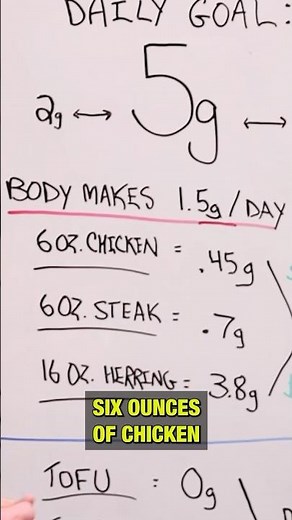 DAILY GOAL:
2g ↔ 5g ↔
BODY MAKES 1.5g/DAY
6 OZ. CHICKEN = .45g
6 OZ. STEAK = .7g
16 OZ. HERRING = 3.8g
SIX OUNCES
OF CHICKEN
TOFU : 0g